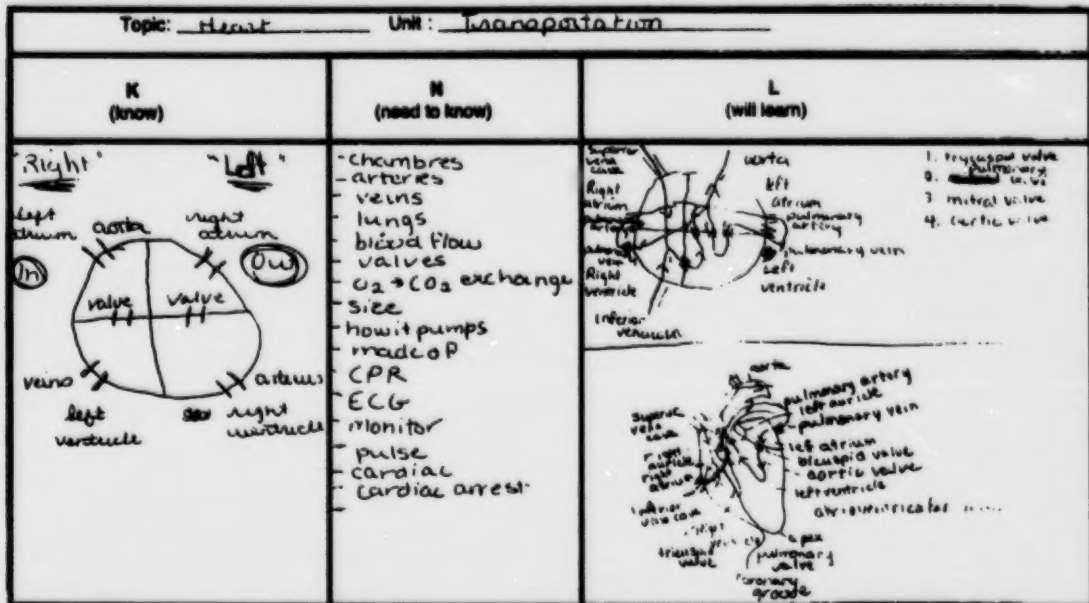 Topic: Heart Unit: Transportation
K
(know)
N
(need to know)
L
(will learn)
"Right" "Left"
left
atrium
aorta
right
atrium
In
valve valve
veins
arteries
left
ventricle
right
ventricle
- chambres
- arteries
- veins
- lungs
- blood flow
- valves
- O2 → CO2 exchange
- size
- how it pumps
- made of
- CPR
- ECG
- monitor
- pulse
- cardiac
- cardiac arrest
Superior
vena
cava
aorta
Right
atrium
left
atrium
pulmonary
artery
pulmonary vein
Right
ventricle
Left
ventricle
Inferior
1. tricuspid valve
2. pulmonary
3. mitral valve
4. aortic valve
aorta
pulmonary artery
left auricle
pulmonary vein
vena
cava
right
auricle
right
atrium
left atrium
bicuspid valve
aortic valve
left ventricle
inferior
vena cava
apex
valve
pulmonary
valve
coronary
groove